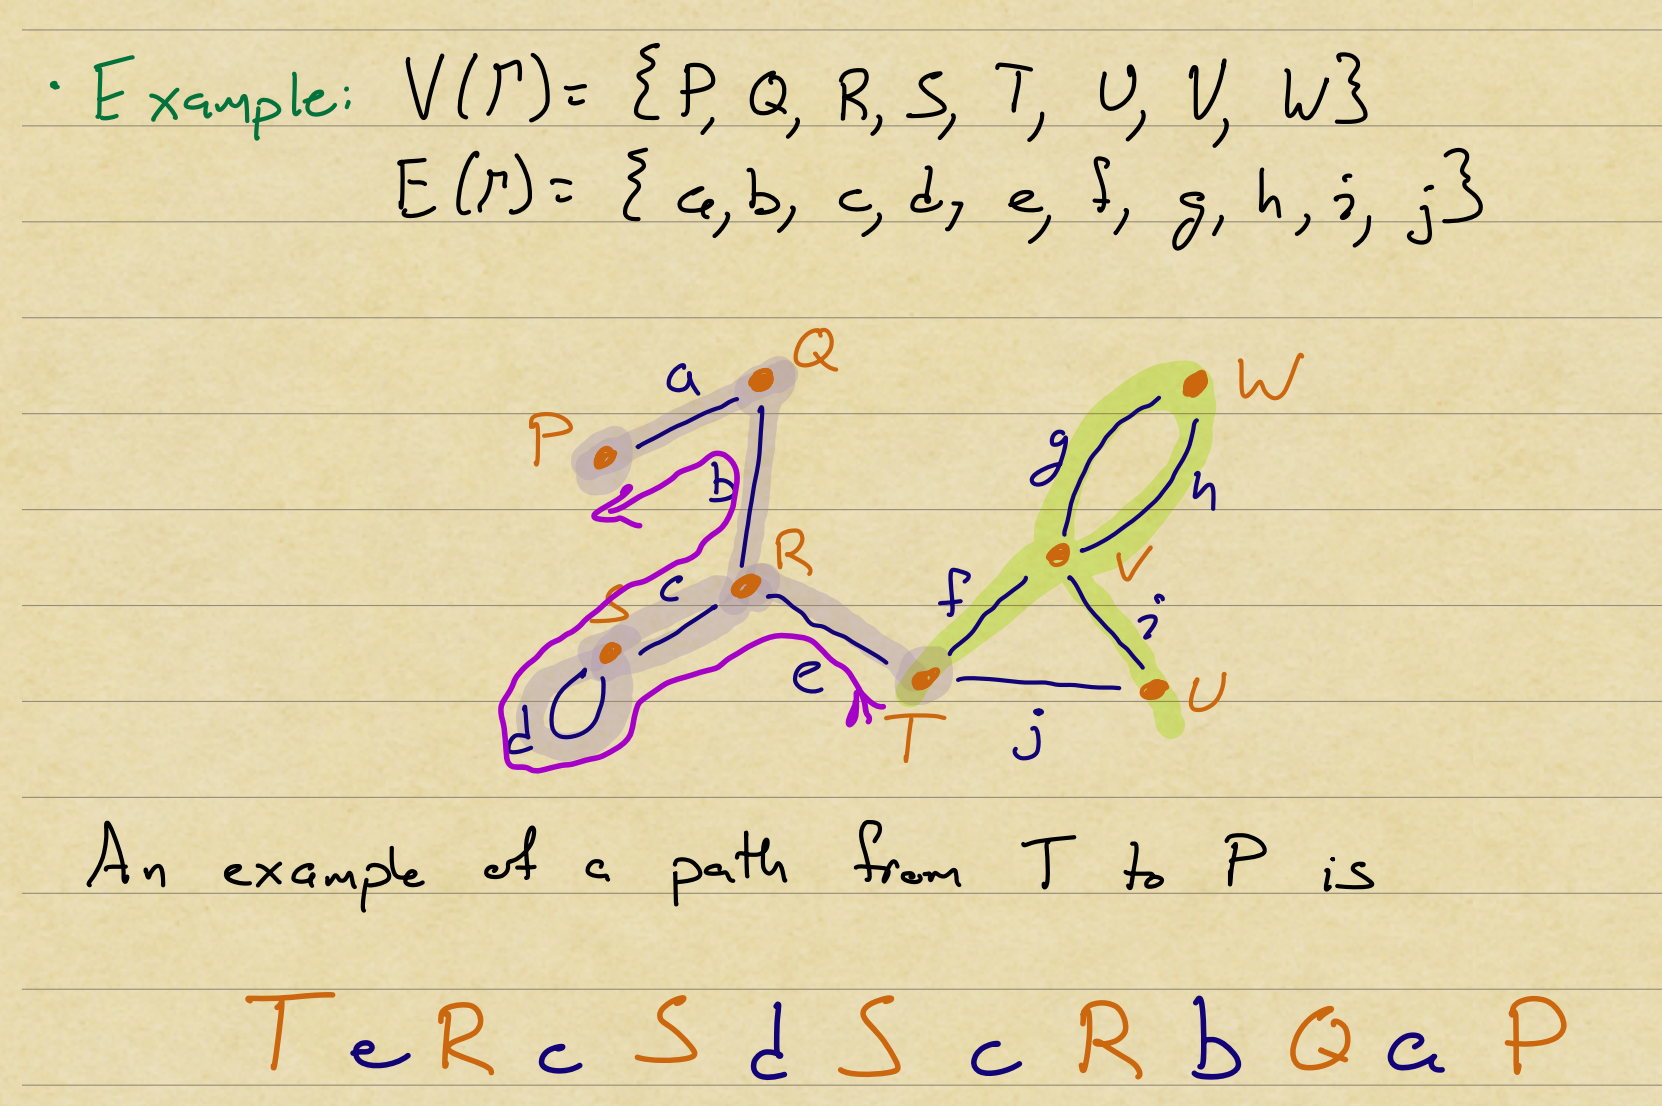 · Example: V(Γ) = {P, Q, R, S, T, U, V, W}
E(Γ) = {a, b, c, d, e, f, g, h, i, j}
Q
a
W
P
g
b
h
R
V
S
c
f
i
e
U
d
T
j
An example of a path from T to P is
T e R c S d S c R b Q a P